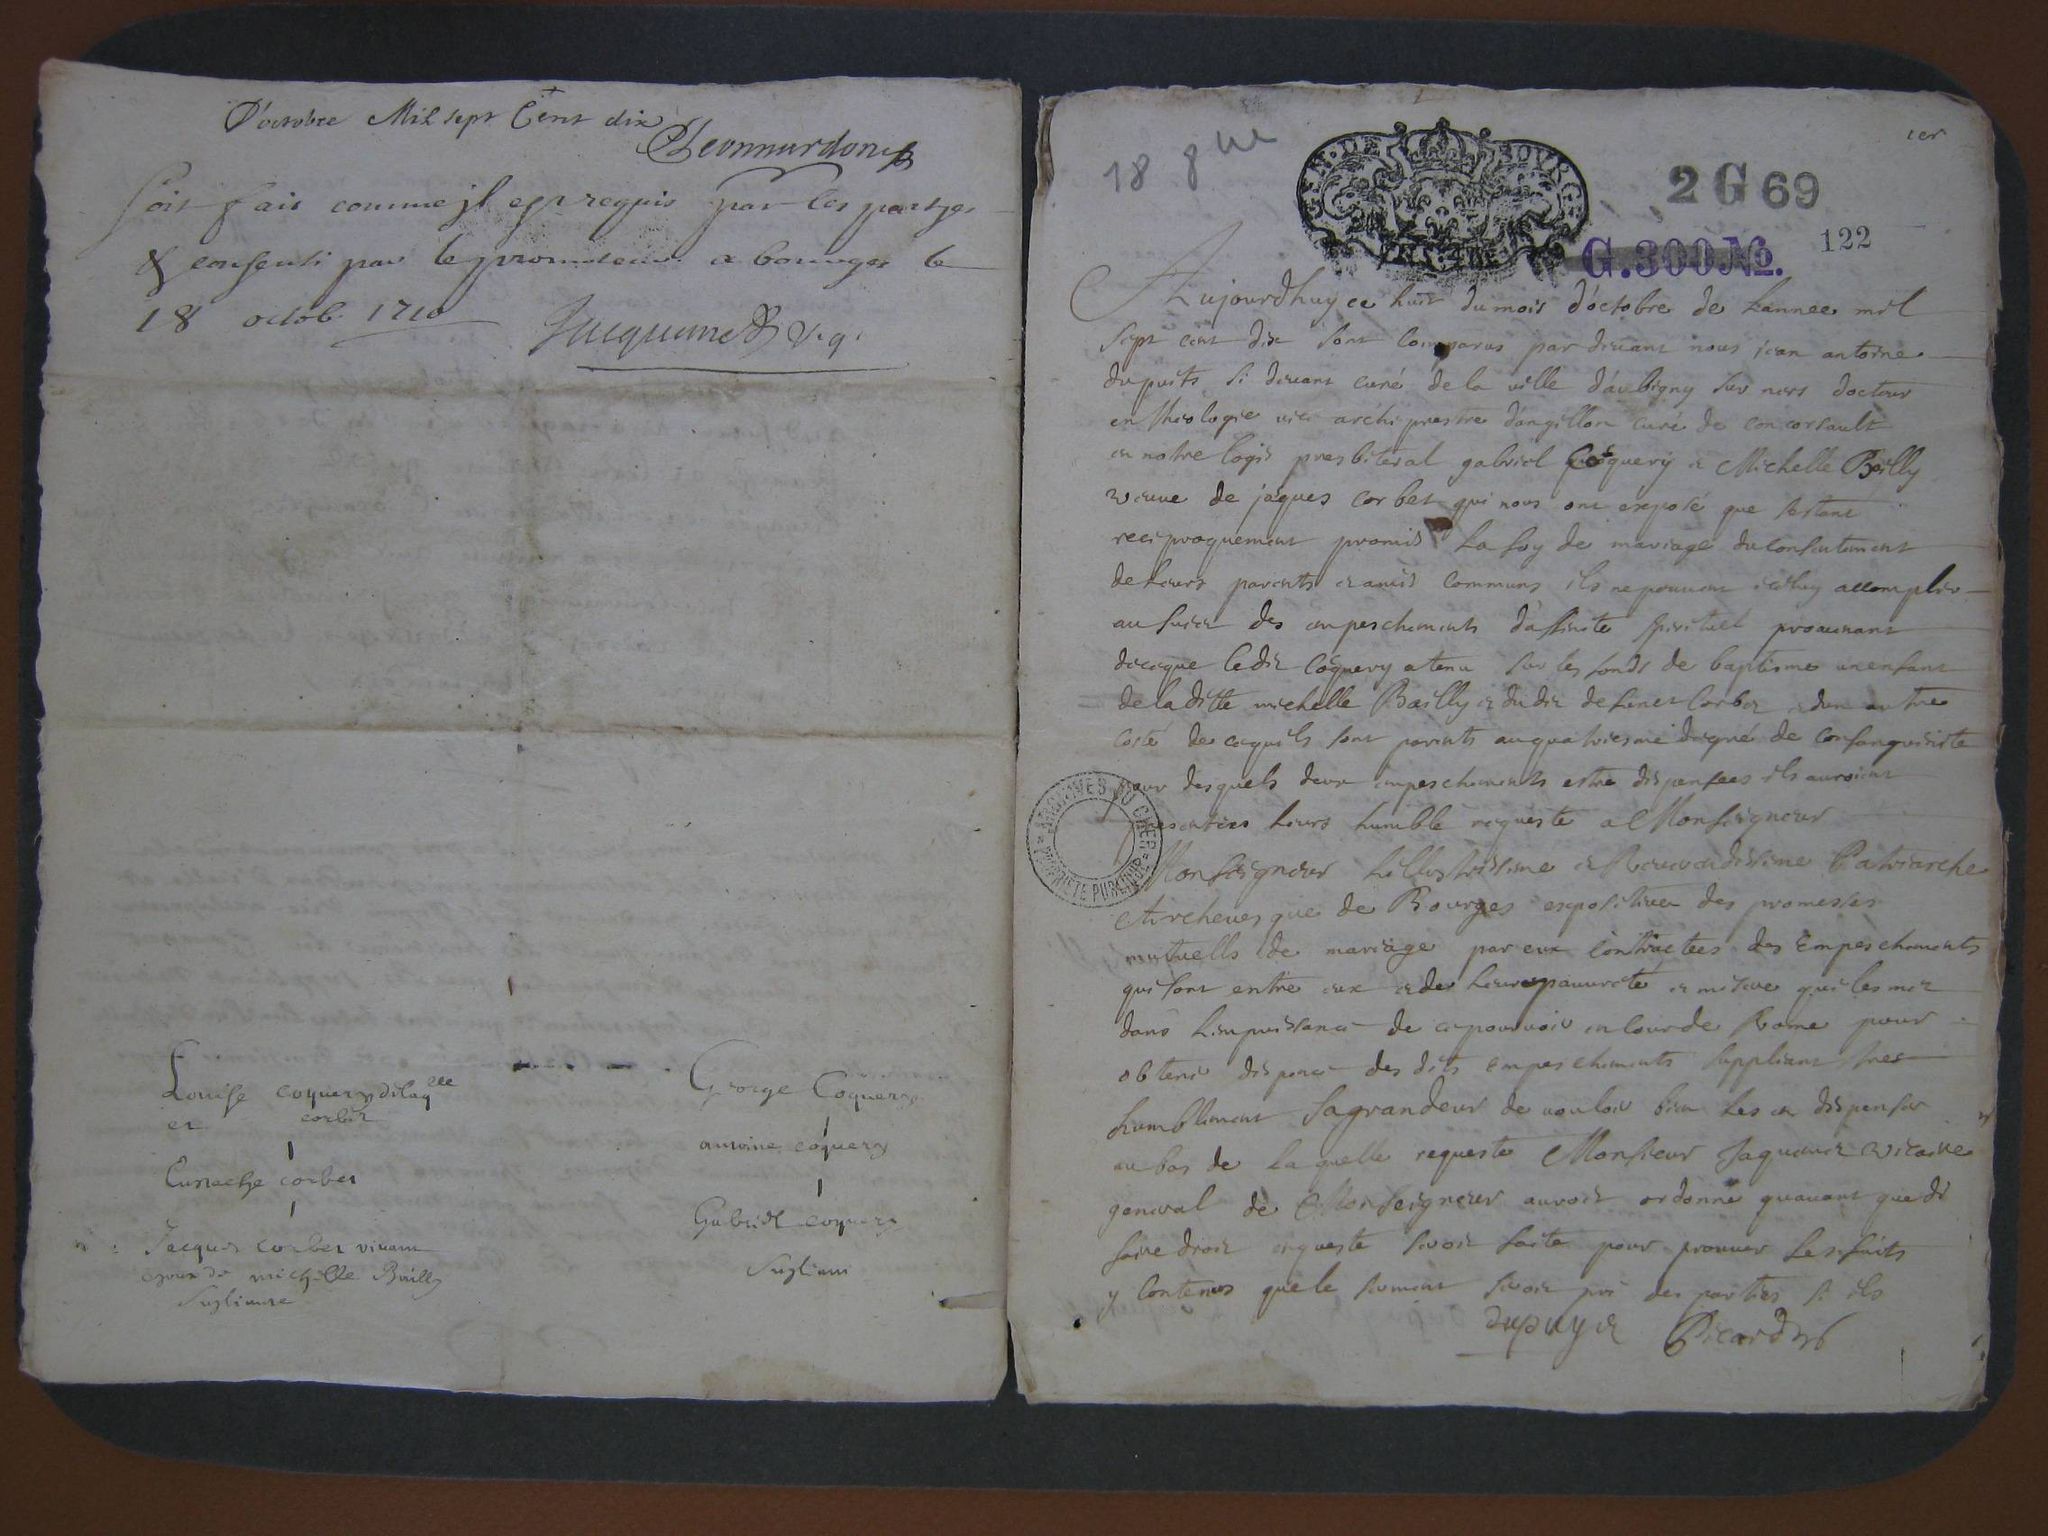 D'octobre Mil sept Cent dix
soit fait comme jl est requis par les partyes
& consenti par le promoteur a bourges le
18 octob. 1710
Louise coquery dilaqlle
et corbet
Eustache corbet
Jacques corbet vivant
epoux de michelle Bailly
supliante
George Coquery
antoine coquery
Gabriel coquery
supliant
1er
18 8bre
GEN. DE BOURGES
2 G 69
G.300 No.
122
Aujourdhuy ce huit du mois d'octobre de Lannee mil
sept cent dix sont Comparus par devant nous jean antoine
dupuits si devant curé de la ville d'aubigny sur ners docteur
en theologie vice archiprestre dangillon curé de concorsault
en notre logis presbiteral gabriel Coquery et Michelle Bailly
veuve de jaques corbet qui nous ont exposé que sestant
reciproquement promis La foy de mariage du consentement
de Leurs parents et amis communs ils ne peuvent iceluy accomplir
au sujet des empeschements d'afinité spirituel provenant
de ceque ledit Coquery a tenu sur les fonds de baptisme un enfant
de laditte michelle Bailly et du dit defunct Corbet et d'un autre
costé de cequils sont parents au quatriesme degré de consanguinité
pour desquels deux empeschements estre dispensees ils auroient
presentées Leurs humble requeste a Monseigneur
Monseigneur Lillustrissime et Reverendissime Patriarche
Archevesque de Bourges expositive des promesses
mutuells de mariage par eux Contractees des Empeschements
qui sont entre eux et de Leur pauvreté et misere qui les met
dans Limpuissance de ce pourvoir en Cour de Rome pour
obtenir dispence des dits empeschements suppliant tres
humblement sa grandeur de vouloir bien Les en dispenser
au bas de Laquelle requeste Monsieur Jaquemet vicaire
general de Monseigneur auroit ordonné quavant que di
faire droit enqueste seroit faite pour prouver Les faits
y Contenus que le serment seroit pris des parties si ils
dupuy et Picard
ARCHIVES DU CHER
PROPRIETE PUBLIQUE